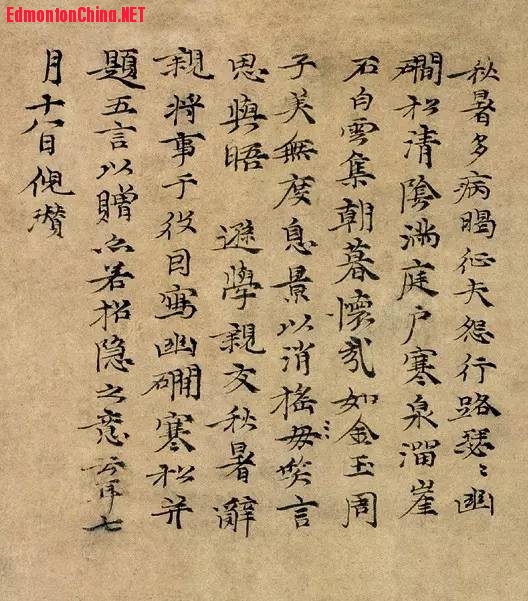 EdmontonChina.NET
秋暑多病暍征夫怨行路瑟〻幽
磵松清陰滿庭戶寒泉溜崖
石白雲集朝暮懷哉如金玉周
子美無度息景以消搖毋笑言
思與晤 遜學親友秋暑辭
親將事于役因寫幽磵寒松并
題五言以贈亦若招隱之意云耳七
月十八日倪瓚